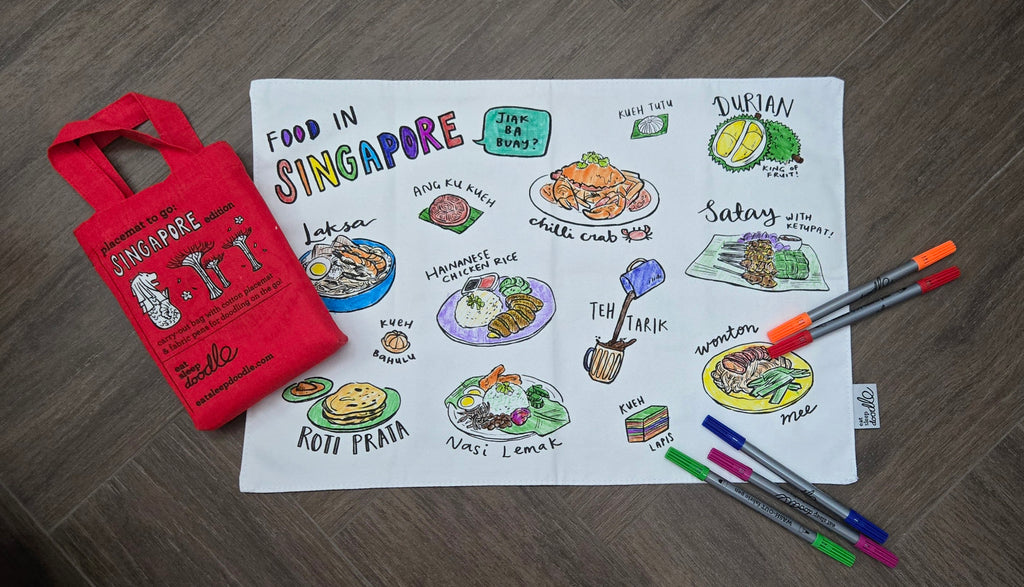 FOOD IN
SINGAPORE
JIAK
BA
BUAY?
KUEH TUTU
DURIAN
KING OF
FRUIT!
ANG KU KUEH
chilli crab
Satay WITH
KETUPAT!
Laksa
HAINANESE
CHICKEN RICE
TEH TARIK
KUEH
BAHULU
wonton
mee
ROTI PRATA
Nasi Lemak
KUEH
LAPIS
eat
sleep
doodle
placemat to go:
SINGAPORE edition
carry-out bag with cotton placemat
& fabric pens for doodling on the go!
eat
sleep
doodle
eatsleepdoodle.com